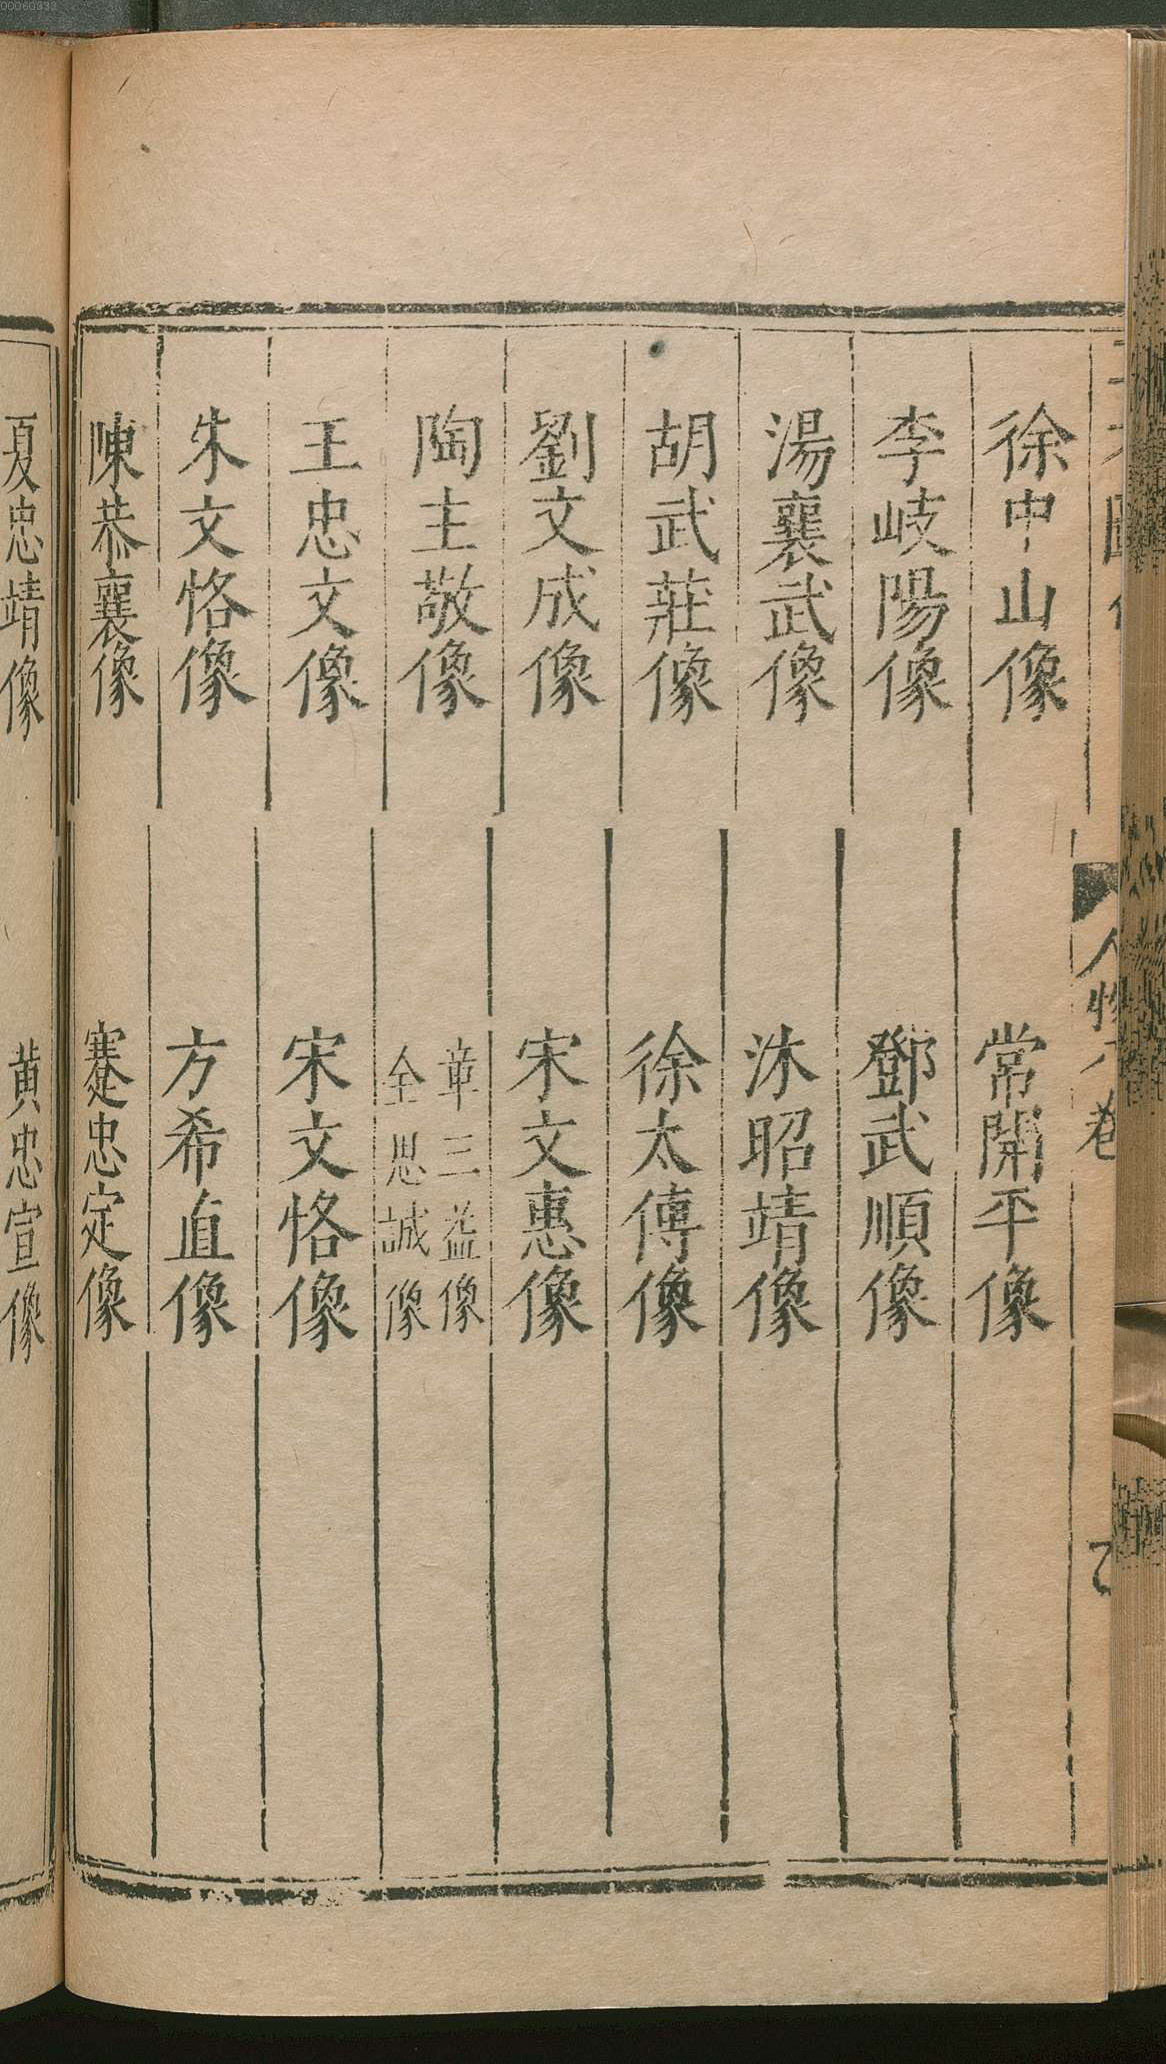 徐中山像 常開平像
李岐陽像 鄧武順像
湯襄武像 沐昭靖像
胡武莊像 徐太傅像
劉文成像 宋文惠像
陶主敬像 章三益像
全思誠像
王忠文像 宋文恪像
朱文恪像 方希直像
陳恭襄像 蹇忠定像
夏忠靖像 黄忠宣像
人物 卷
00060333